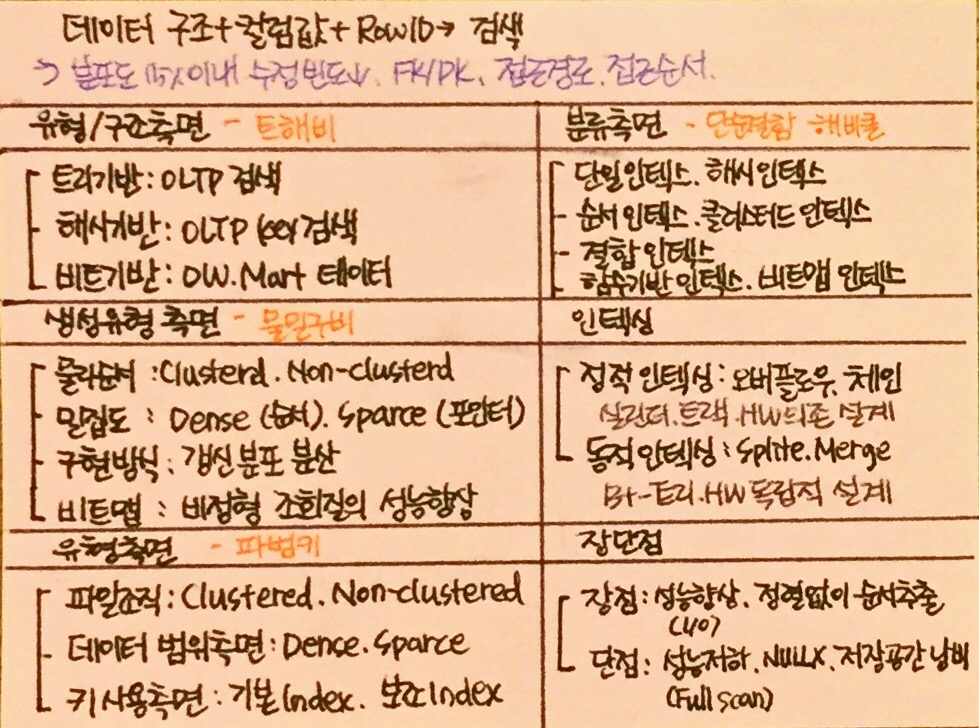 데이터 구조+컬럼값+RowID→ 검색
→ 분포도 15%이내 수정빈도↓. FK/PK. 접근경로. 접근순서.
유형/구조측면 - 트해비
트리기반: OLTP 검색
해시기반: OLTP key 검색
비트기반: DW. Mart 데이터
분류측면 - 단순결함 해비클
단일인덱스. 해시인덱스
순서인덱스. 클러스터드 인덱스
결합인덱스
함수기반인덱스. 비트맵 인덱스
생성유형 측면 - 물밀구비
물리순서 : Clusterd. Non-clusterd
밀집도 : Dense (순서). Sparce (포인터)
구현방식 : 갱신 분포 분산
비트맵 : 비정형 조회질의 성능향상
인덱싱
정적인덱싱: 오버플로우, 체인
실린더.트랙.HW의존 설계
동적인덱싱: Splite. Merge
B+-트리.HW독립적 설계
유형측면 - 파범키
파일조직: Clustered. Non-clustered
데이터 범위측면: Dense. Sparce
키사용측면 : 기본Index. 보조Index
장단점
장점: 성능향상. 정렬없이 순서추출
단점: 성능저하. NULLX. 저장공간 낭비
(Full scan)